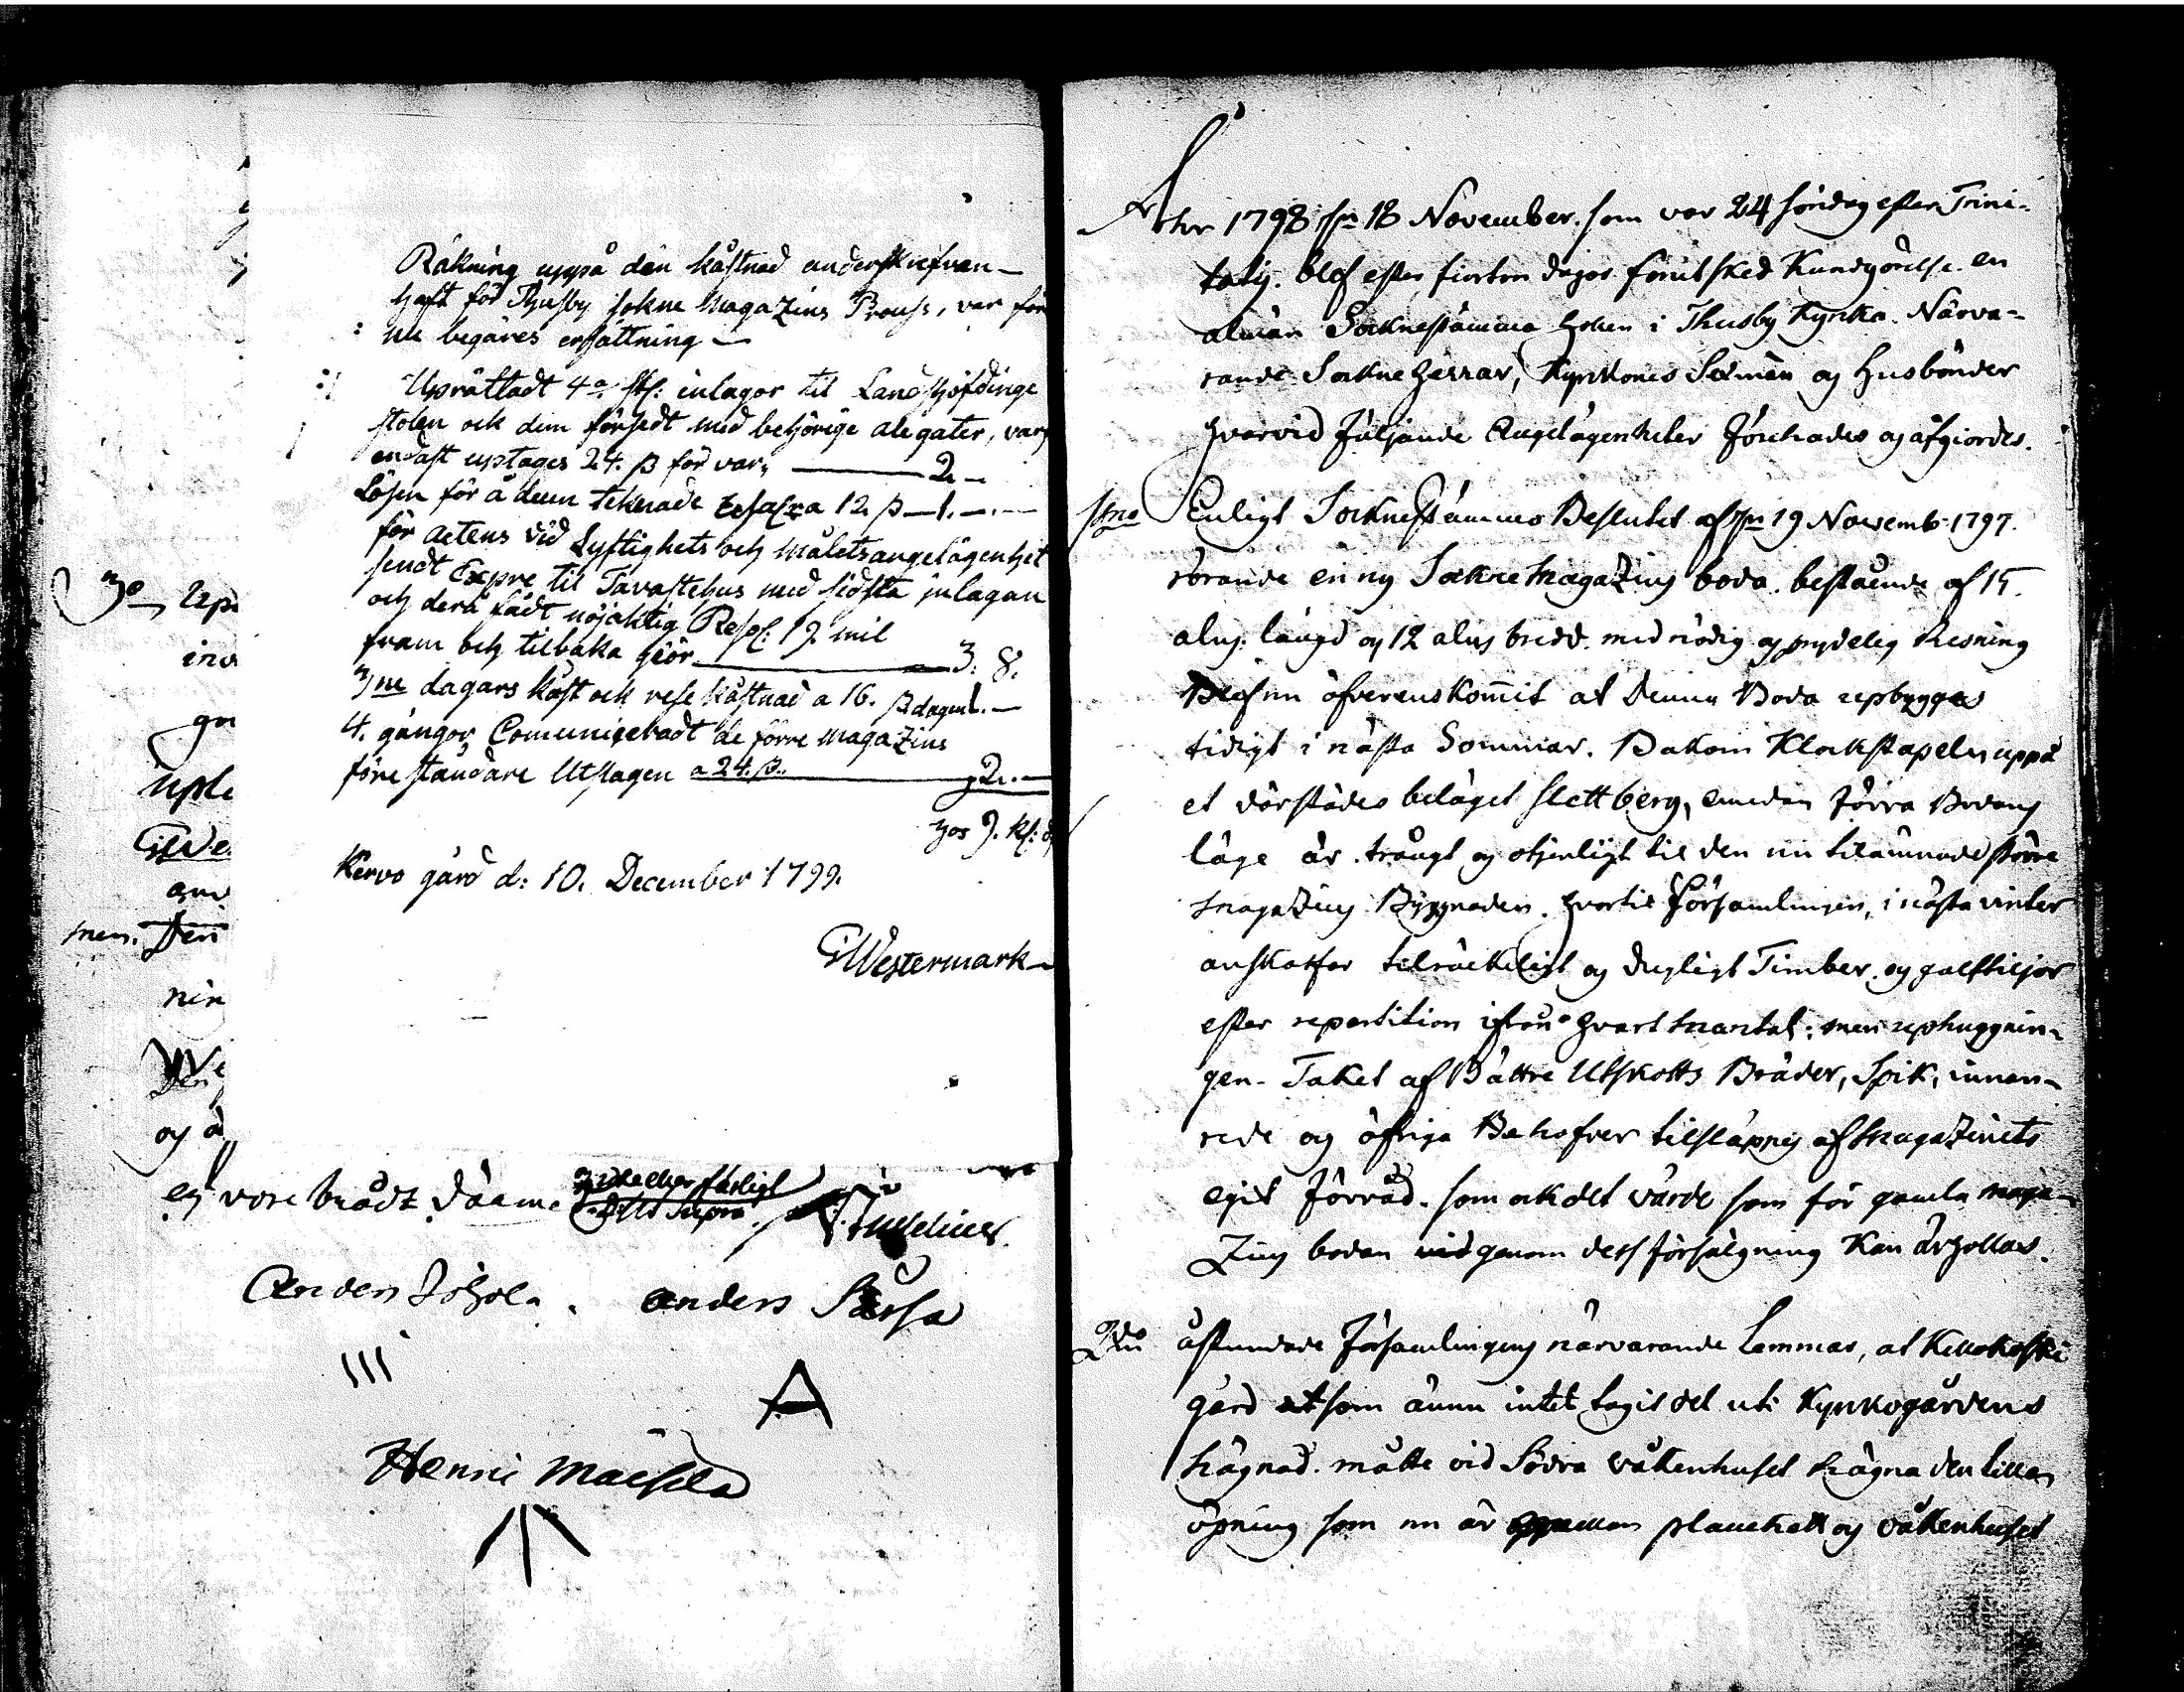 Räkning uppå den kåstnad underskrefvan-
haft för Thusby sokne Magazins Prouss, var för
nu begäres ersättning
Uprättadt 4a st: inlagor til Landshöfdinge
stolen ock dem försedt med behörige alegater, vars
endast uptages 24. β för var, 2.-
Lösen för å dem teknade a 12 β 1.-
för actens vid Lyftighets och målets angelägenhet
sendt Expre til Tavastehus med sidsta inlagan
och derå fådt nöjaktig Resol: 19 mil
fram och tilbaka giör 3: 8.
3ne dagars kåst ock rese kåstnad a 16. β dagen 1.-
4. gångor Comunicebadt de förre Magazins
föreståndare Utslagen a 24. β. 2.-
Kervo gård d: 10. December 1799.
GWestermark
3o Up
upl
men. Den
nin
og å
ej vore brådt
Ut Supra
Anders Anders
III
A
Henric
Åhr 1798 den 18 November. som var 24 söndag efter Trini-
tatis. blef efter fiorton dagar förut sked Kundgörelse. en
almän Socknestämma holen i Thusby Kyrka. Närva-
rande Sockne Herrar, Kyrkones Sexmän og Husbönder
hvarvid följande Angelägenheter förehades og afgiordes.
1mo Enligt Socknestämmo Beslutet af den 19 Novemb: 1797.
rörande en ny Sockne Magazins boda. bestående af 15.
alns: längd og 12 alns bredd. med nödig og prydelig Resning
Blef nu öfverenskommit at denna Boda upbygges
tidigt i nästa Sommar. Bakom Klockstapeln uppå
et därstädes beläget slett berg, emedan förra Bodans
läge är trångt og otjenligt til den nu tilämnade större
Magazins Byggnaden. hvartil Församlingen, i nästa vinter
anskaffar tilräckeligt og dugligt Timber. og golftiljor
efter repartition ifrån hvart Mantal: men uphuggnin-
gen. Taket af Bättre Utskotts Bräder, Spik, innan-
rede og öfriga Behofver tilsläpnes af Magazinets
eget förråd. som ock det värde som för gamla Maga-
zins bodan genom dess försälgning kan ärhollas.
2do åstundade församlingens närvarande Lemmar, at Kellokoski
gård som ännu intet tagit del uti Kyrkogårdens
hägnad. måtte vid Södra våkenhuset hägna den lilla
öpning som nu är plancket og våkenhuset